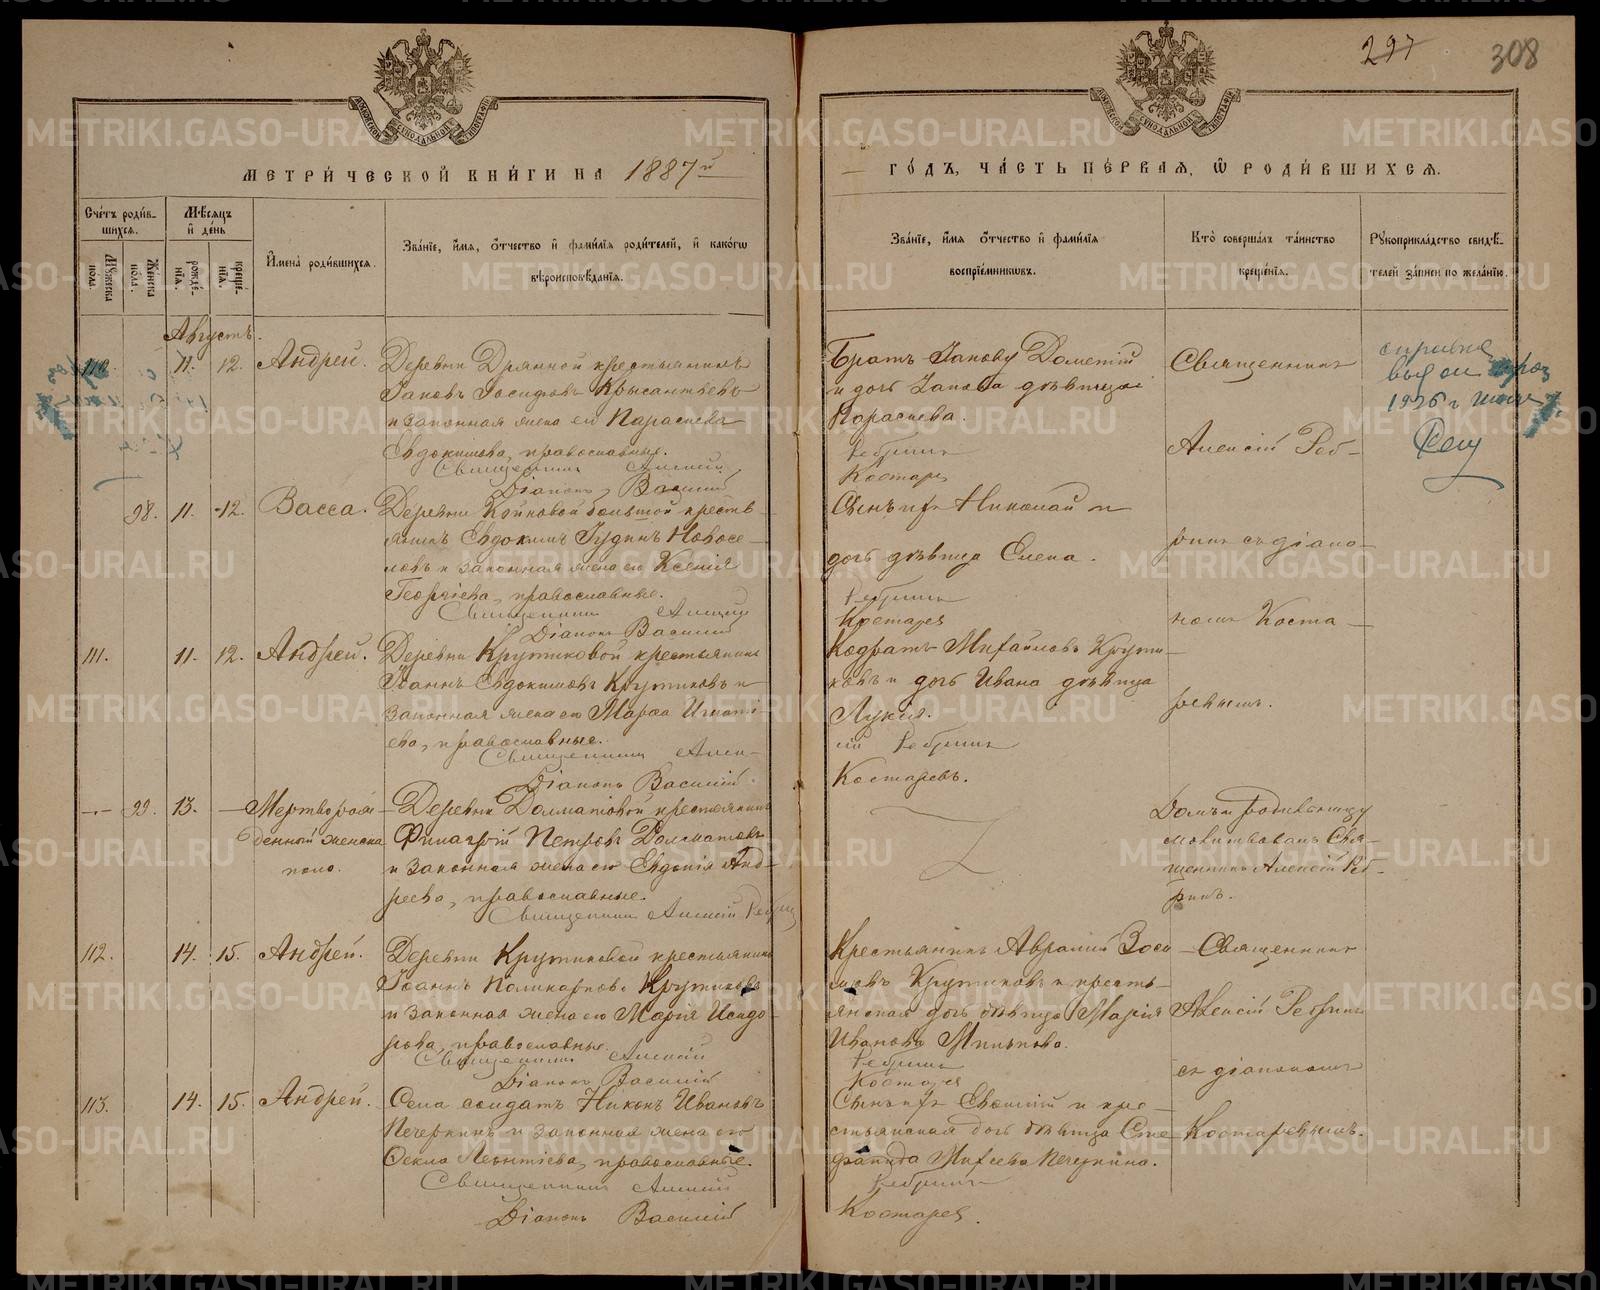 297 308
МЕТРИЧЕСКОЙ КНИГИ НА 1887й
ГОДЪ, ЧАСТЬ ПЕРВАЯ, Ѿ РОДИВШИХСЯ.
Счетъ родившихся.
Мужеска пола.
Женска пола.
Мѣсяцъ и день
рожденія.
крещенія.
Имена родившихся.
Званіе, имя, отчество и фамилія родителей, и какого
вѣроисповѣданія.
Званіе, имя отчество и фамилія
воспріемниковъ.
Кто совершалъ таинство
крещенія.
Рукоприкладство свидѣтелей записи по желанію.
Августъ.
110. 11. 12. Андрей.
Деревни Дрянной крестьянинъ
Іаковъ Іосифовъ Крысантьевъ
и законная жена его Параскева
Евдокимова, православные.
Священникъ Алексій
Діаконъ Василій
Братъ Іакову Дометій
и дочь Іакова дѣвица
Параскева.
Ребринъ
Костарев
Священникъ
Алексій Реб-
ринъ съ діако-
номъ Коста-
ревымъ.
98. 11. 12. Васса.
Деревни большой кресть-
янинъ Евдокимъ Іудинъ Новосе-
ловъ и законная жена его Ксенія
Георгіева, православные.
Священникъ Алексій
Діаконъ Василій
Сынъ их Николай и
дочь дѣвица Елена.
Ребринъ
Костарев
111. 11. 12. Андрей.
Деревни Крутиковой крестьянинъ
Іоаннъ Евдокимовъ Крутиковъ и
законная жена его Марѳа Игнаті-
ева, православные.
Священникъ Алек-
Діаконъ Василій
Кодратъ Михайловъ Крути-
ковъ и дочь Ивана дѣвица
Лукія.
сій Ребринъ
Костаревъ.
99. 13. Мертворож-
денный женска
пола.
Деревни Долматовой крестьянинъ
Филагрій Петровъ Долматовъ
и законная жена его Евдокія Анд-
реева, православные.
Священникъ Алексій Ребрин
Домъ и родильницу
молитвовалъ Свя-
щенникъ Алексій Реб-
ринъ.
112. 14. 15. Андрей.
Деревни Крутиковой крестьянинъ
Іоаннъ Поликарповъ Крутиковъ
и законная жена его Марія Исидо-
рова, православные.
Священникъ Алексій
Діаконъ Василій
Крестьянинъ Аврамій Зоси-
мовъ Крутиковъ и кресть-
янская дочь дѣвица Марія
Иванова
Ребринъ
Костарев
Священникъ
Алексій Ребринъ
съ діакономъ
Костаревымъ.
113. 14. 15. Андрей.
Села солдатъ Никонъ Ивановъ
Печеркинъ и законная жена его
Ѳекла Леонтіева, православные.
Священникъ Алексій
Діаконъ Василій
Сынъ их и кре-
стьянская дочь дѣвица Сте-
фанида Михеева Печеркина.
Ребринъ
Костарев.
справка
выдан
1926 г
METRIKI.GASO-URAL.RU